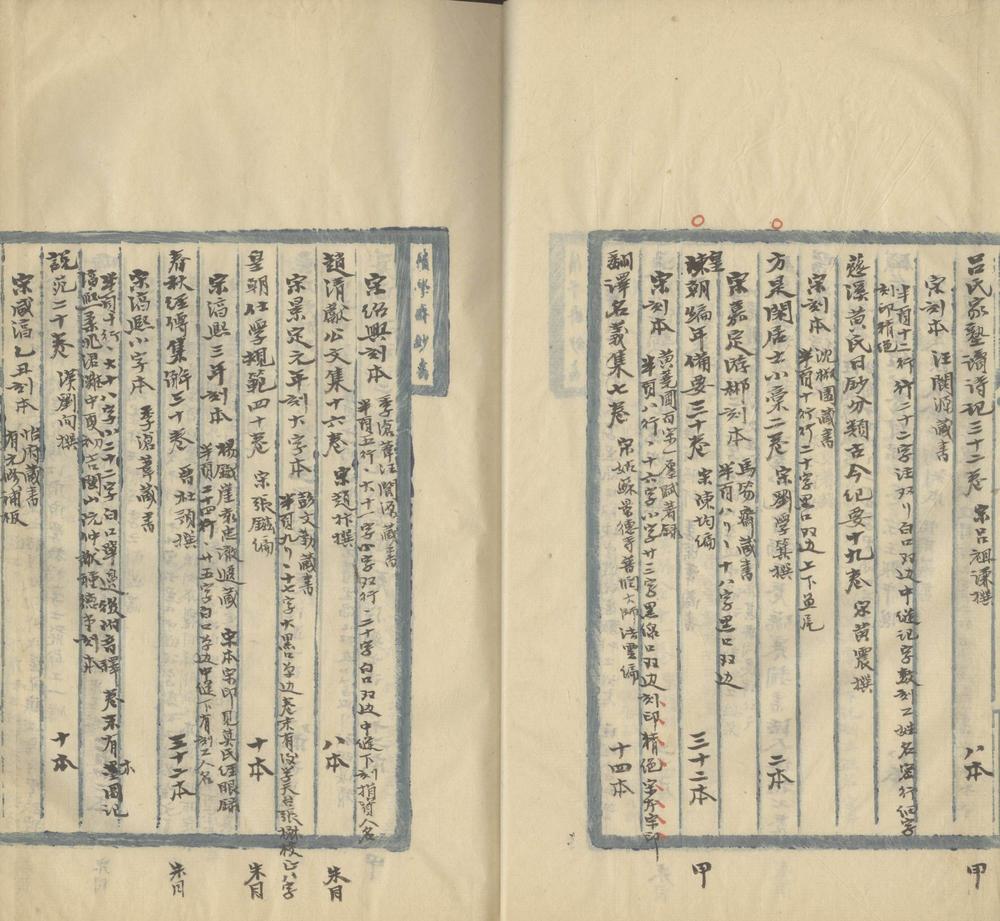 呂氏家塾讀詩記三十二卷 宋呂祖謙撰 八本 甲
宋刻本 汪閬源藏書
半頁十二行行二十二字注双行白口双边中縫記字數刻工姓名宻行細字
刻印精絕
慈溪黃氏日鈔分類古今紀要十九卷 宋黃震撰
宋刻本 沈椒園藏書
半頁十行行二十字黑口双边上下魚尾
方是閒居士小稾二卷 宋劉學箕撰 二本
宋嘉定游郴刻本 馬笏齋藏書
半頁八行十八字黑口双边
皇朝編年備要三十卷 宋陳均編 三十二本 甲
宋刻本 黃蕘圃百宋一廛賦著錄
半頁八行十六字小字廿三字黑線口双边刻印精絕宋本宋印
翻譯名義集七卷 宋姑蘇景德寺普潤大師法雲編 十四本
積學齋鈔書
宋紹興刻本 季滄葦汪閬源藏書
半頁五行大十一字小字双行二十字白口双边中縫下刻捐資人名
趙清獻公文集十六卷 宋趙抃撰 八本 朱月
宋景定元年刻大字本 彭文勤藏書
半頁九行十七字大黑口单边卷末有後學天台張樹校正八字
皇朝仕學規範四十卷 宋張鎡編 十本 朱月
宋淳熙三年刻本 楊鐵崖袁忠澈遞藏 宋本宋印見莫氏經眼錄
半頁十四行廿五字白口单边中縫下有刻工人名
春秋經傳集解三十卷 晉杜預撰 三十二本 朱月
宋淳熙小字本 季滄葦藏書
半頁十行大十八字小二十二字白口单邊後附音釋 卷末有木
淳熙柔兆涒灘中夏初吉閩山阮仲猷種德堂刻本 墨圖記
說苑二十卷 漢劉向撰 十本
宋咸淳乙丑刻本 怡府藏書
有元修補板